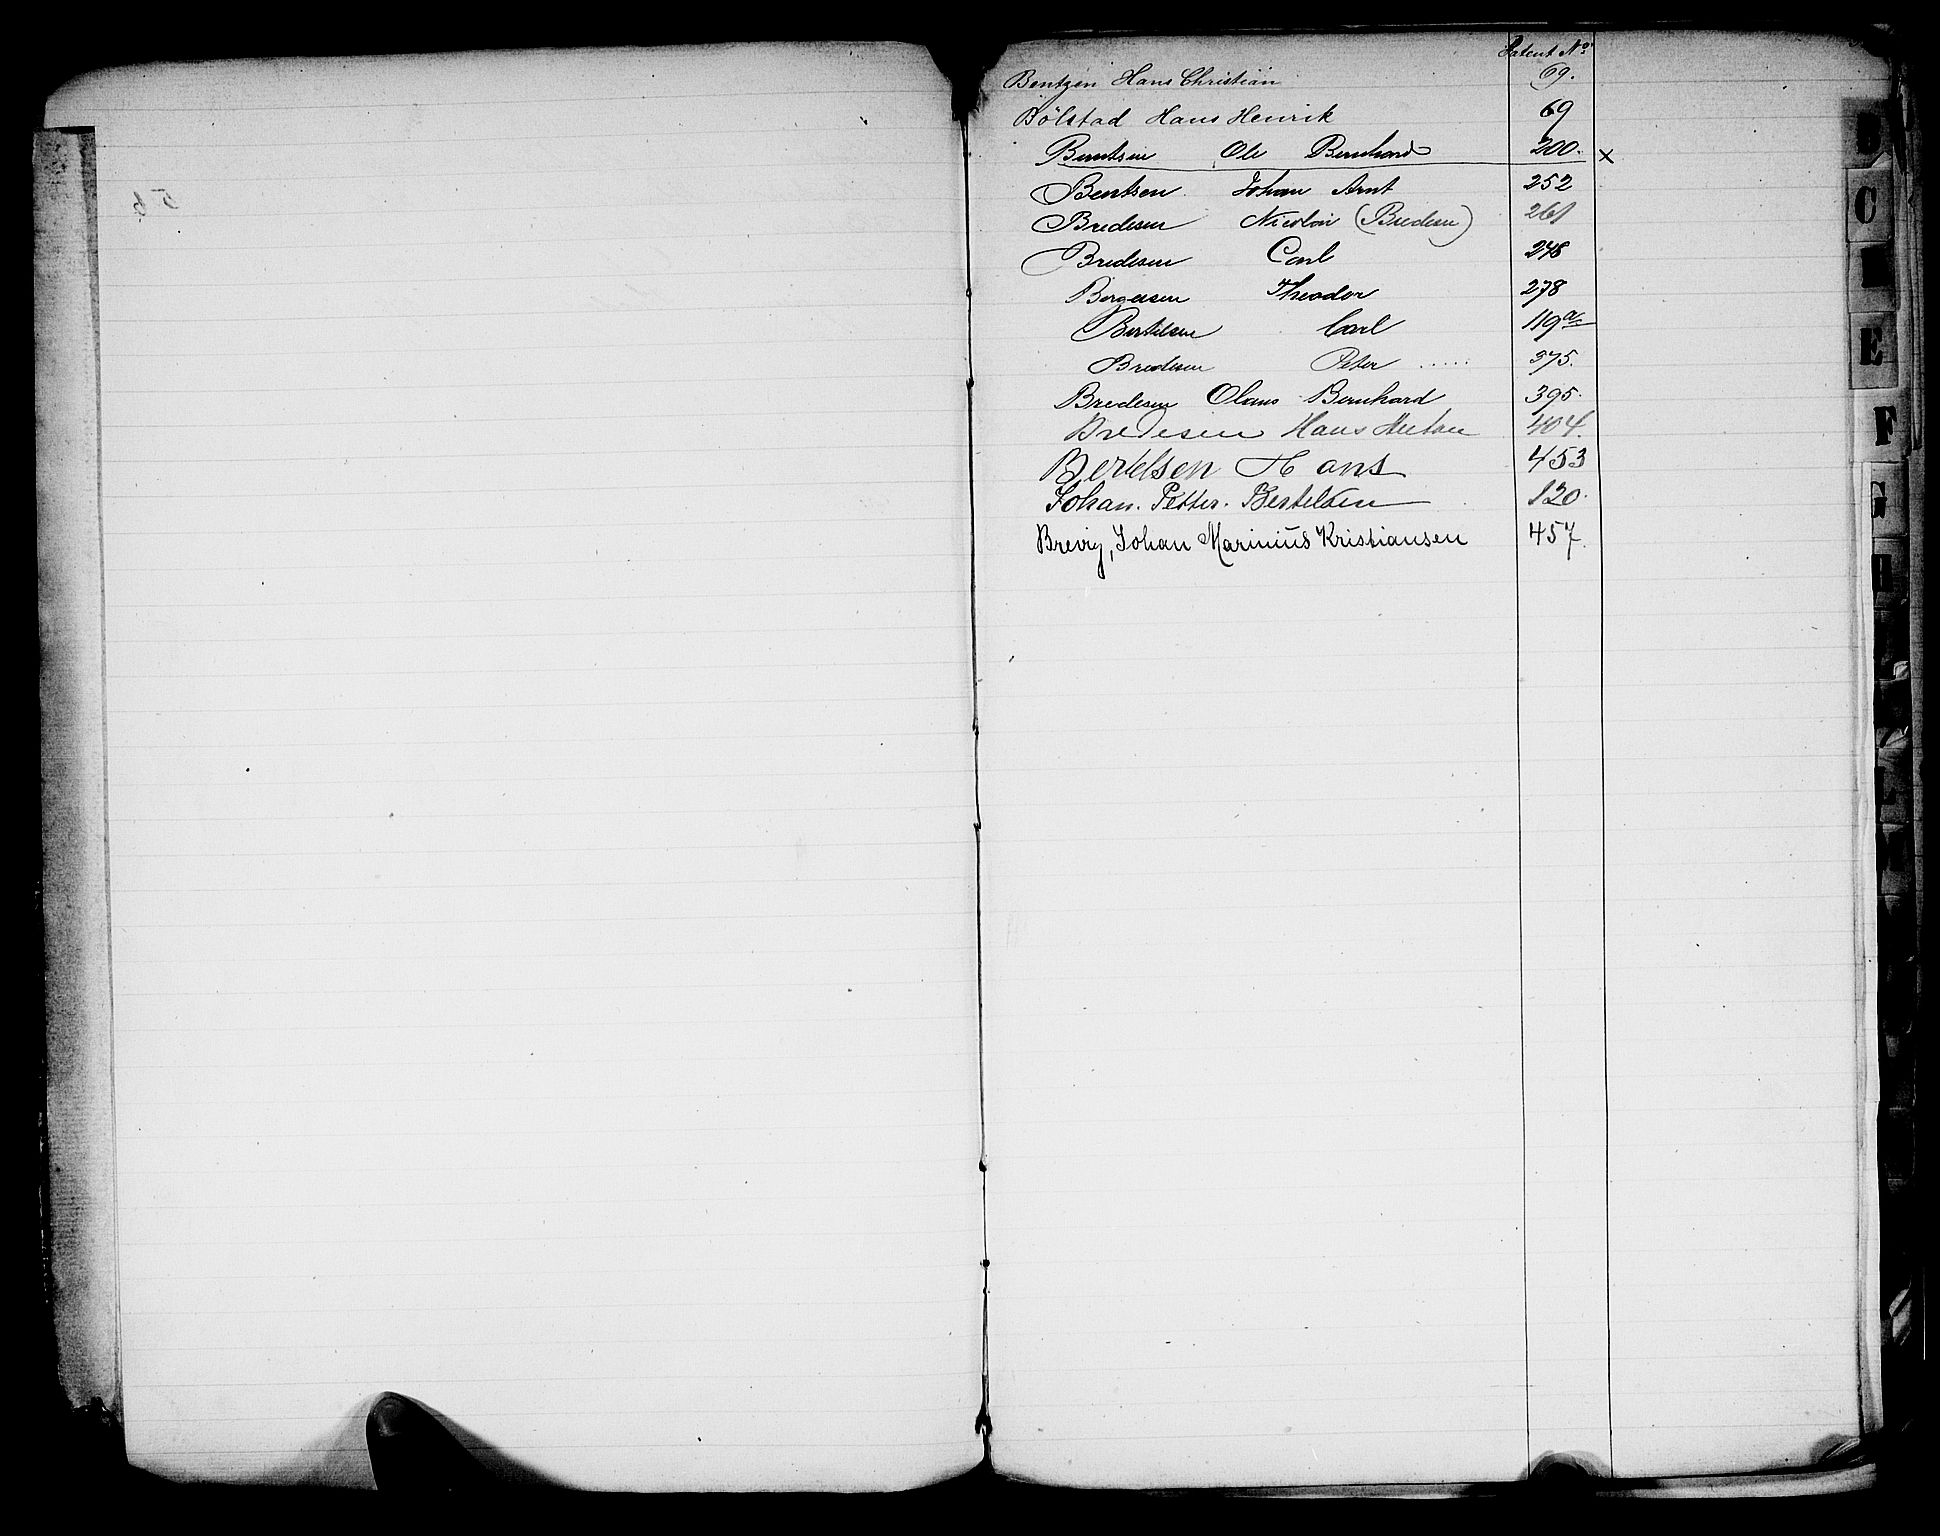 Patent No
Bentzen Hans Christian 69.
Bölstad Hans Henrik 69
Berntsen Ole Bernhard 200. x
Bentsen Johan Arnt 252
Bredesen Nicolai (Bredesen) 261
Bredesen Carl 248
Borgersen Theodor 278
Bertelsen Carl 119a
Bredesen Peter ..... 375.
Bredesen Olaus Bernhard 395.
Bredesen Hans 404.
Bertelsen Hans 453
Johan. Petter. Bertelsen 120.
Brevig, Johan Marinius Kristiansen 457.
B
C
E
F
G
H